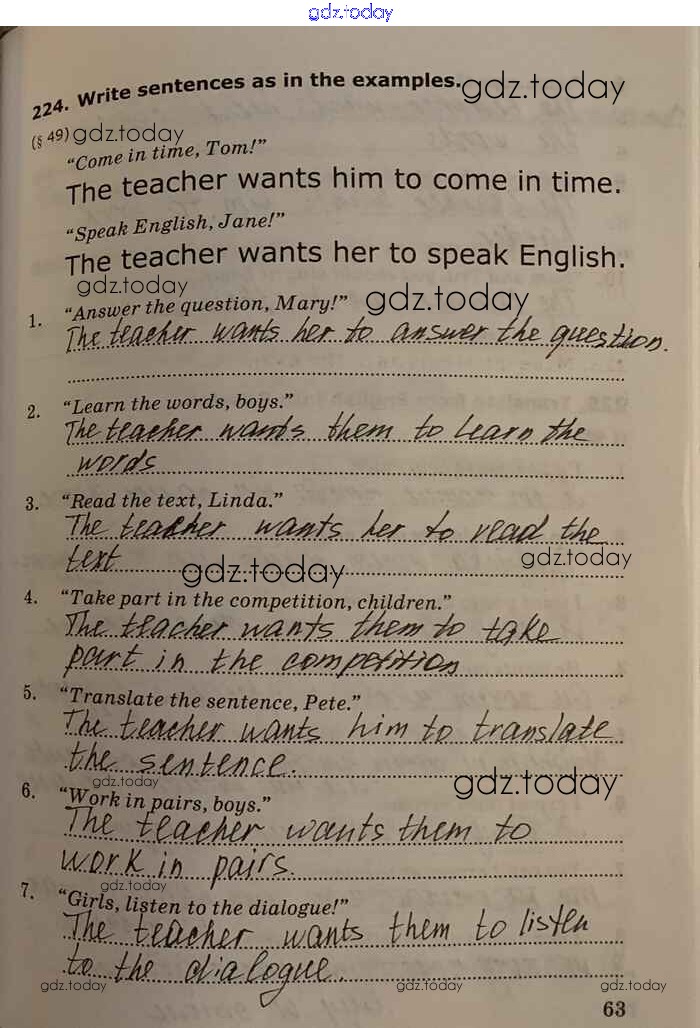 gdz.today
224. Write sentences as in the examples. gdz.today
(§ 49) gdz.today
"Come in time, Tom!"
The teacher wants him to come in time.
"Speak English, Jane!"
The teacher wants her to speak English.
gdz.today
1. "Answer the question, Mary!" gdz.today
The teacher wants her to answer the question.
2. "Learn the words, boys."
The teacher wants them to learn the
words
3. "Read the text, Linda."
The teacher wants her to read the
text gdz.today gdz.today
4. "Take part in the competition, children."
The teacher wants them to take
part in the competition
5. "Translate the sentence, Pete."
The teacher wants him to translate
the sentence.
gdz.today gdz.today
6. "Work in pairs, boys."
The teacher wants them to
work in pairs.
gdz.today
7. "Girls, listen to the dialogue!"
The teacher wants them to listen
to the dialogue.
gdz.today gdz.today gdz.today gdz.today
63